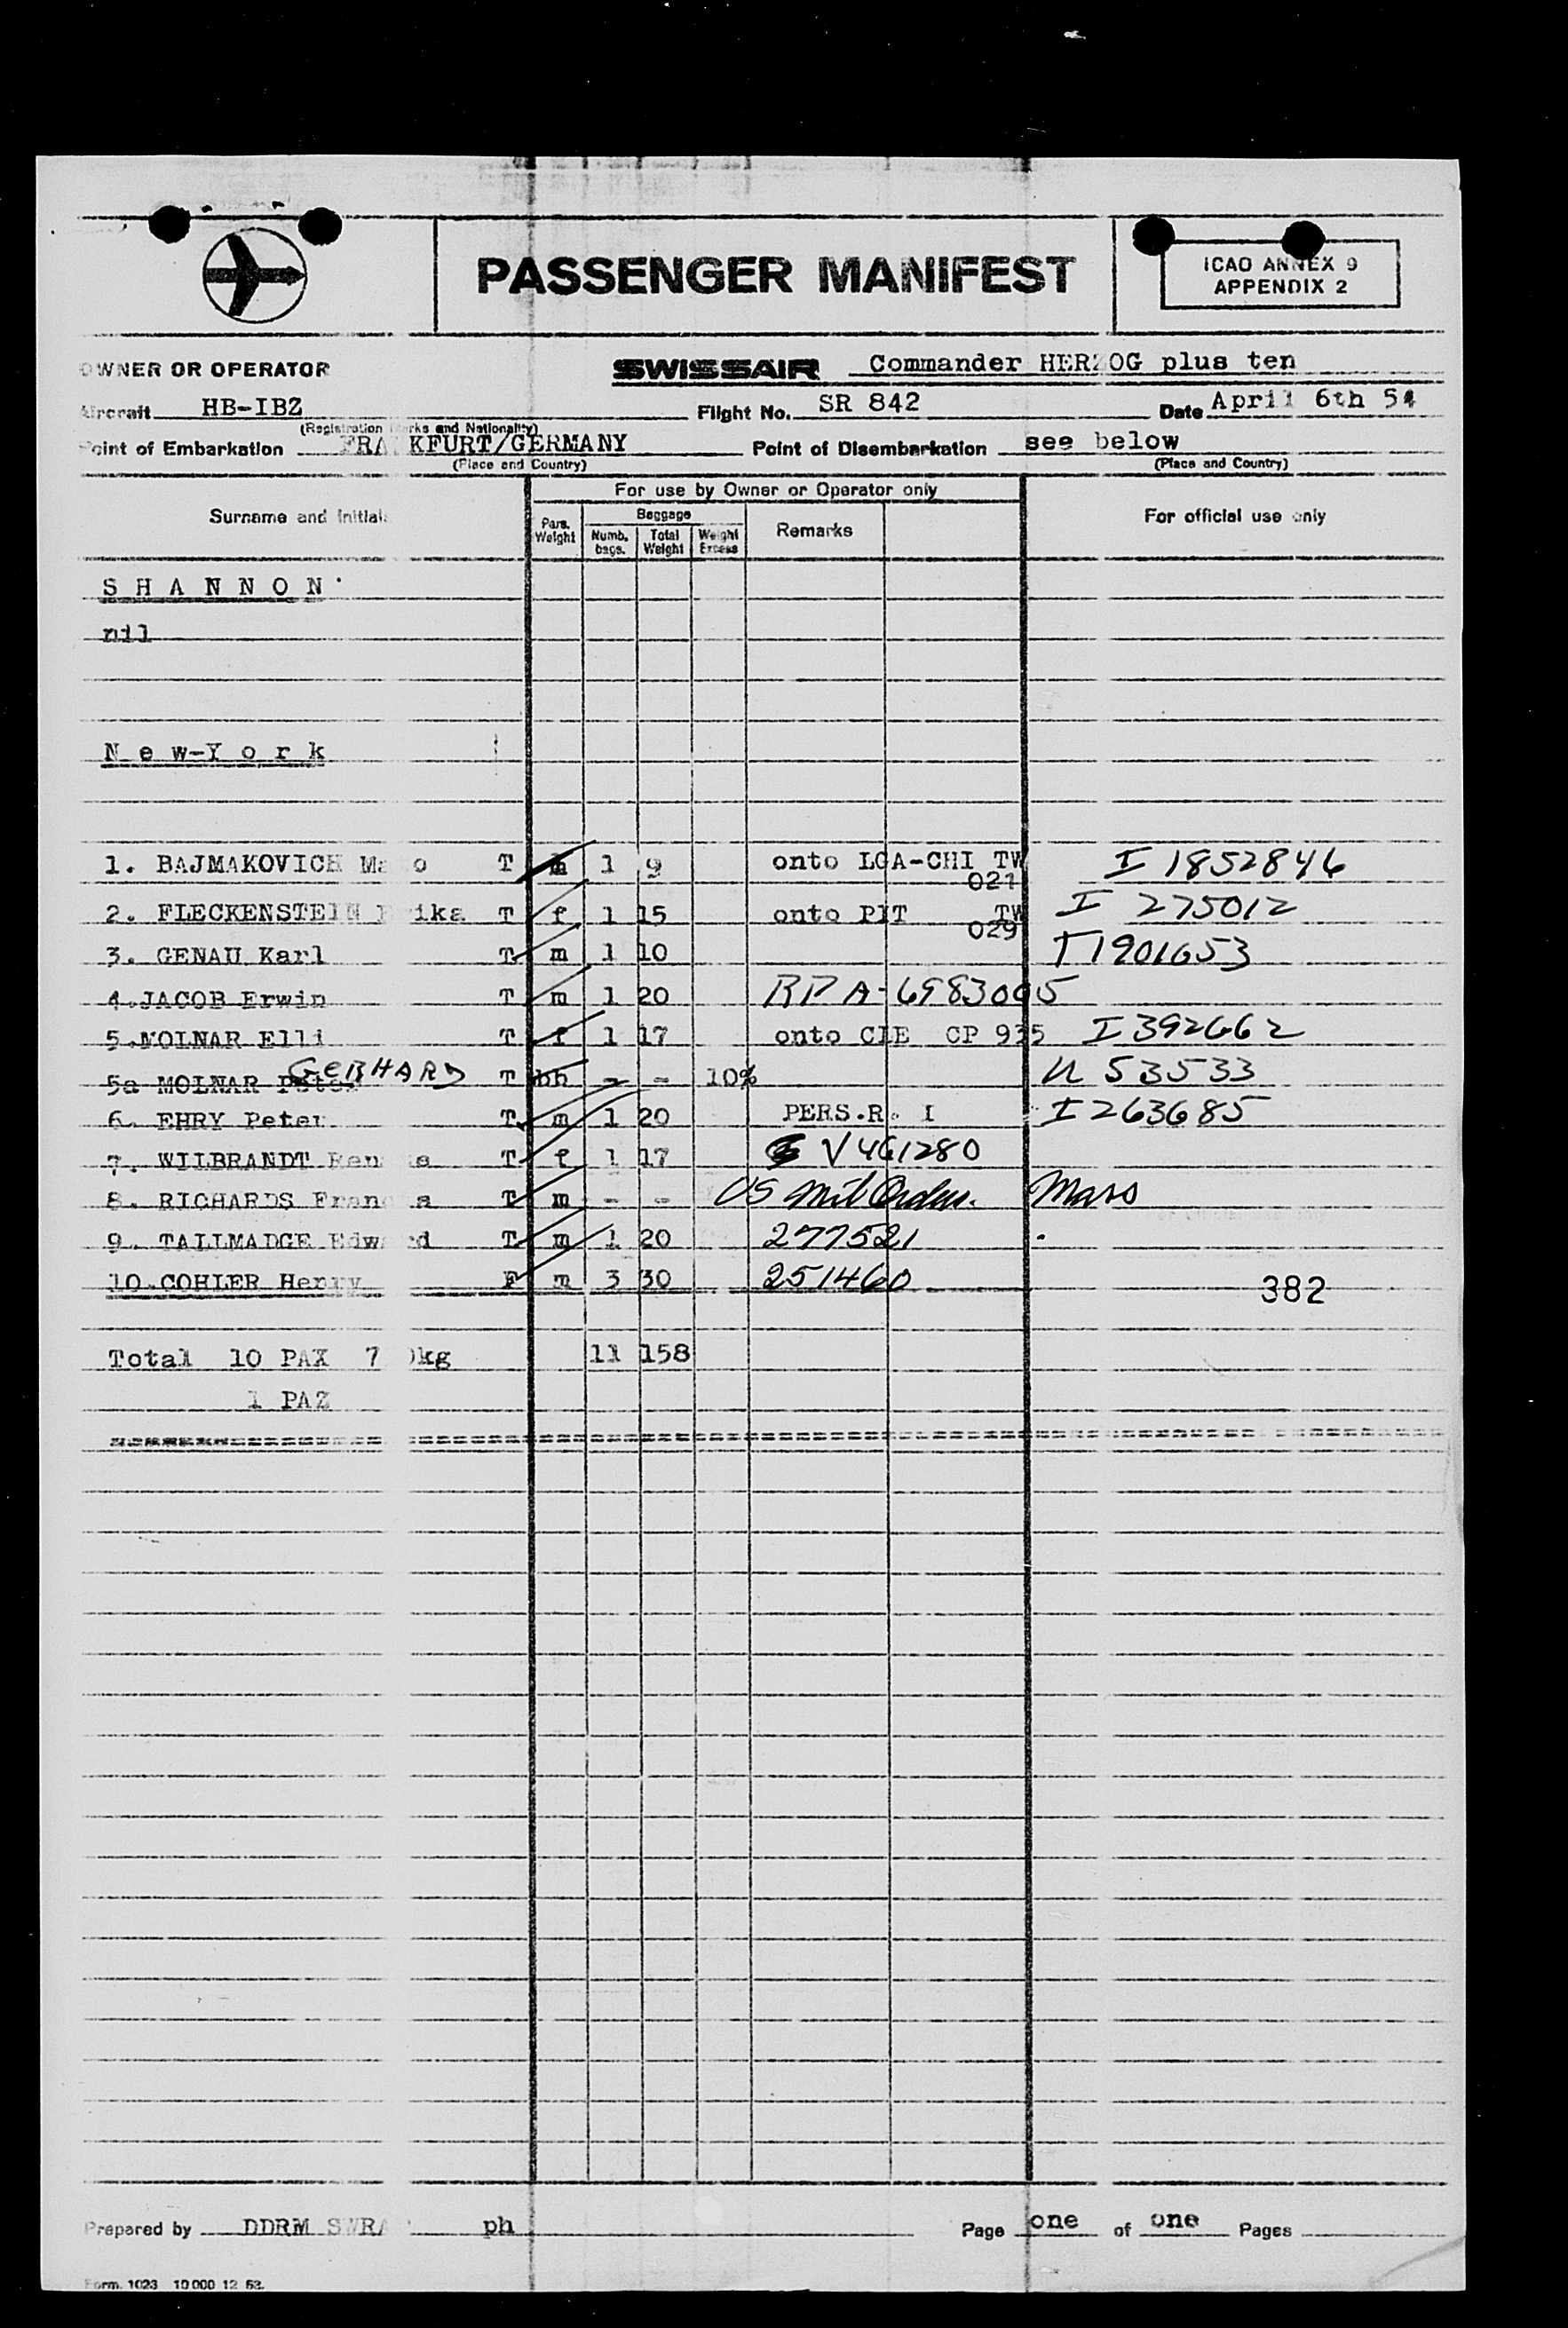 PASSENGER MANIFEST
ICAO ANNEX 9
APPENDIX 2
OWNER OR OPERATOR SWISSAIR Commander HERZOG plus ten
Aircraft HB-IBZ Flight No. SR 842 Date April 6th 54
(Registration Marks and Nationality)
Point of Embarkation FRANKFURT/GERMANY Point of Disembarkation see below
(Place and Country) (Place and Country)
For use by Owner or Operator only
Surname and Initials Pars. Weight Baggage Numb. bags. Total Weight Weight Excess Remarks For official use only
S H A N N O N
nil
N e w-Y o r k
1. BAJMAKOVICH T m 1 9 onto LGA-CHI TW 021 I 1852846
2. FLECKENSTEIN Erika T f 1 15 onto PIT TW 029 I 275012
3. GENAU Karl T m 1 10 I 1901653
4.JACOB Erwin T m 1 20 RP A-6983005
5.MOLNAR Elli T f 1 17 onto CLE CP 935 I 392662
5a MOLNAR Peter GERHARD T bb - - 10% U 53533
6. EHRY Peter T m 1 20 PERS.R. I I 263685
7. WILBRANDT T f 1 17 V 461280
8. RICHARDS T m - - US Mil Orders. Mass
9. TALLMADGE Edward T m 1 20 277521
10.COHLER Henry F m 3 30 251460
382
Total 10 PAX 7 0kg 11 158
1 PAZ
Prepared by DDRM SWRA ph Page one of one Pages
Form. 1023 10 000 12 53.